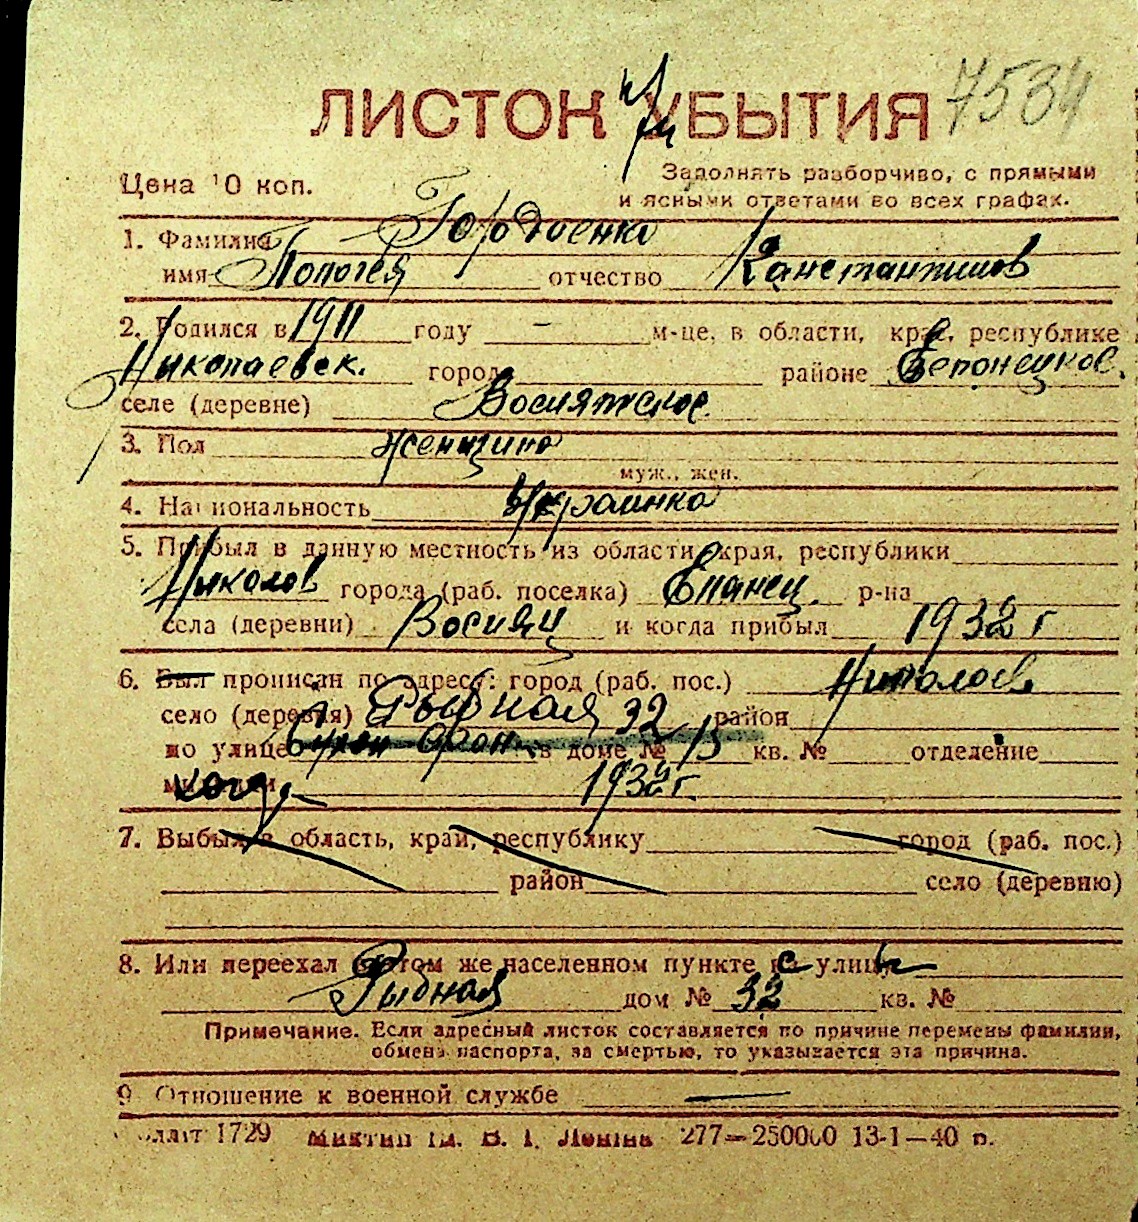 ЛИСТОК УБЫТИЯ 7534
при
Цена 10 коп. Заполнять разборчиво, с прямыми
и ясными ответами во всех графах.
1. Фамилия Гордиенко
имя Пологея отчество Констант
2. Родился в 1911 году — м-це, в области, крае, республике
Николаевск. город районе
селе (деревне) Восиятское
3. Пол Женщина
муж., жен.
4. Национальность Украинка
5. Прибыл в данную местность из области, края, республики
Николов города (раб. поселка) Еланец. р-на
села (деревни) Восияц и когда прибыл 1932 г
6. Был прописан по адресу: город (раб. пос.) Николаев
село (деревня) Рыбная 32 район
по улице в доме № 13 кв. № отделение
милиции когда 1932 г.
7. Выбыл в область, край, республику город (раб. пос.)
район село (деревню)
8. Или переехал в том же населенном пункте с улицы
Рыбная дом № 32 кв. №
Примечание. Если адресный листок составляется по причине перемены фамилии,
обмена паспорта, за смертью, то указывается эта причина.
9 Отношение к военной службе —
1729 Ленина 277—250000 13-1—40 р.